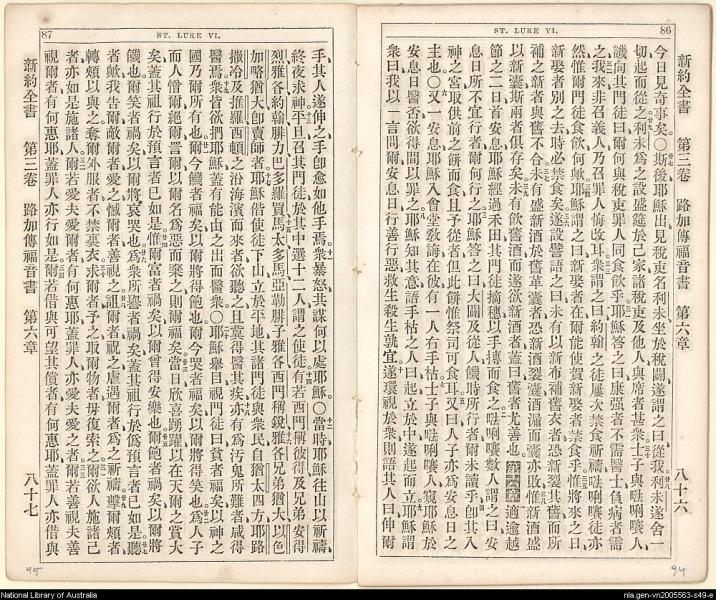 86
ST. LUKE VI.
新約全書 第三卷 路加傳福音書 第六章 八十六
今日見奇事矣〇斯後耶穌出見稅吏名利未坐於稅關遂謂之曰從我利未遂舍一
切起而從之利未爲之設盛筵於己家諸稅吏及他人與席者甚衆士子與㗭唎㘔人
議向其門徒曰爾何與稅吏罪人同食飲乎耶穌答之曰康强者不需醫士負病者需
之我來非召義人乃召罪人悔改耳衆謂之曰約翰之徒屢次禁食祈禱㗭唎㘔徒亦
然惟爾門徒食飲何歟耶穌謂之曰新娶者在爾能使賀新娶者禁食乎惟將來之日
新娶者別之去時必禁食矣遂設譬語之曰未有以新布補舊衣者恐新裂其舊而所
補之新者與舊不合未有盛新酒於舊革囊者恐新酒裂囊酒漏而囊亦敗惟新酒盛
以新囊斯兩者俱存矣未有飲舊酒而遂欲新酒者蓋曰舊者尤善也 第六章 適逾越
節之二日首安息耶穌經過禾田其門徒摘穗以手摶而食之㗭唎㘔數人謂之曰安
息日所不宜行者爾何行之耶穌答之曰大闢及從人饑時所行者爾未讀乎卽其入
神之宮取供前之餅而食且予從者但此餅惟祭司可食耳又曰人子亦爲安息日之
主也〇又一安息耶穌入會堂敎誨在彼有一人右手枯士子與㗭唎㘔人窺耶穌於
安息日醫否欲得間以罪之耶穌知其意語手枯之人曰起立於中遂起而立耶穌謂
衆曰我以一言問爾安息日行善行惡救生殺生孰宜遂環視於衆則語其人曰伸爾
87
ST. LUKE VI.
手其人遂伸之手卽愈如他手焉衆暴怒共謀何以處耶穌〇當時耶穌往山以祈禱
終夜求神平旦召其門徒於其中選十二人謂之使徒有若西門稱彼得及兄弟安得
烈雅各約翰腓力巴多羅買馬太多馬亞勒腓子雅各西門稱銳雅各兄弟猶大以色
加畧猶大卽賣師者耶穌偕使徒下山立於平地其諸門徒與衆民自猶太四方耶路
撒冷及推羅西頓之沿海濱而來者欲聽之且冀得醫其疾亦有爲汚鬼所難者咸得
醫焉衆皆欲捫耶穌蓋有能由之出而醫衆〇耶穌舉目視門徒曰貧者福矣以神之
國乃爾所有也爾今饑者福矣以爾將得飽也爾今哭者福矣以爾將得笑也爲人子
而人憎爾絕爾詈爾以爾名爲惡而棄之則爾福矣當日欣喜踴躍以在天爾之賞大
矣蓋其祖行於預言者已如是惟爾富者禍矣以爾曾得安樂也爾飽者禍矣以爾將
饑也爾笑者禍矣以爾將哀哭也爲衆所譽者禍矣蓋其祖行於僞預言者已如是聽
者歟我告爾敵爾者愛之憾爾者善視之詛爾者祝之虐遇爾者爲之祈禱擊爾頰者
轉頰以與之奪爾外服者不禁裏衣求爾者予之取爾物者毋復索之爾欲人施諸己
者亦如是施諸人爾若愛夫愛爾者有何惠耶蓋罪人亦愛夫愛之者爾若善視夫善
視爾者有何惠耶蓋罪人亦行如是爾若借與可望其償者有何惠耶蓋罪人亦借與
新約全書 第三卷 路加傳福音書 第六章 八十七
95
94
National Library of Australia
nla.gen-vn2005563-s49-e